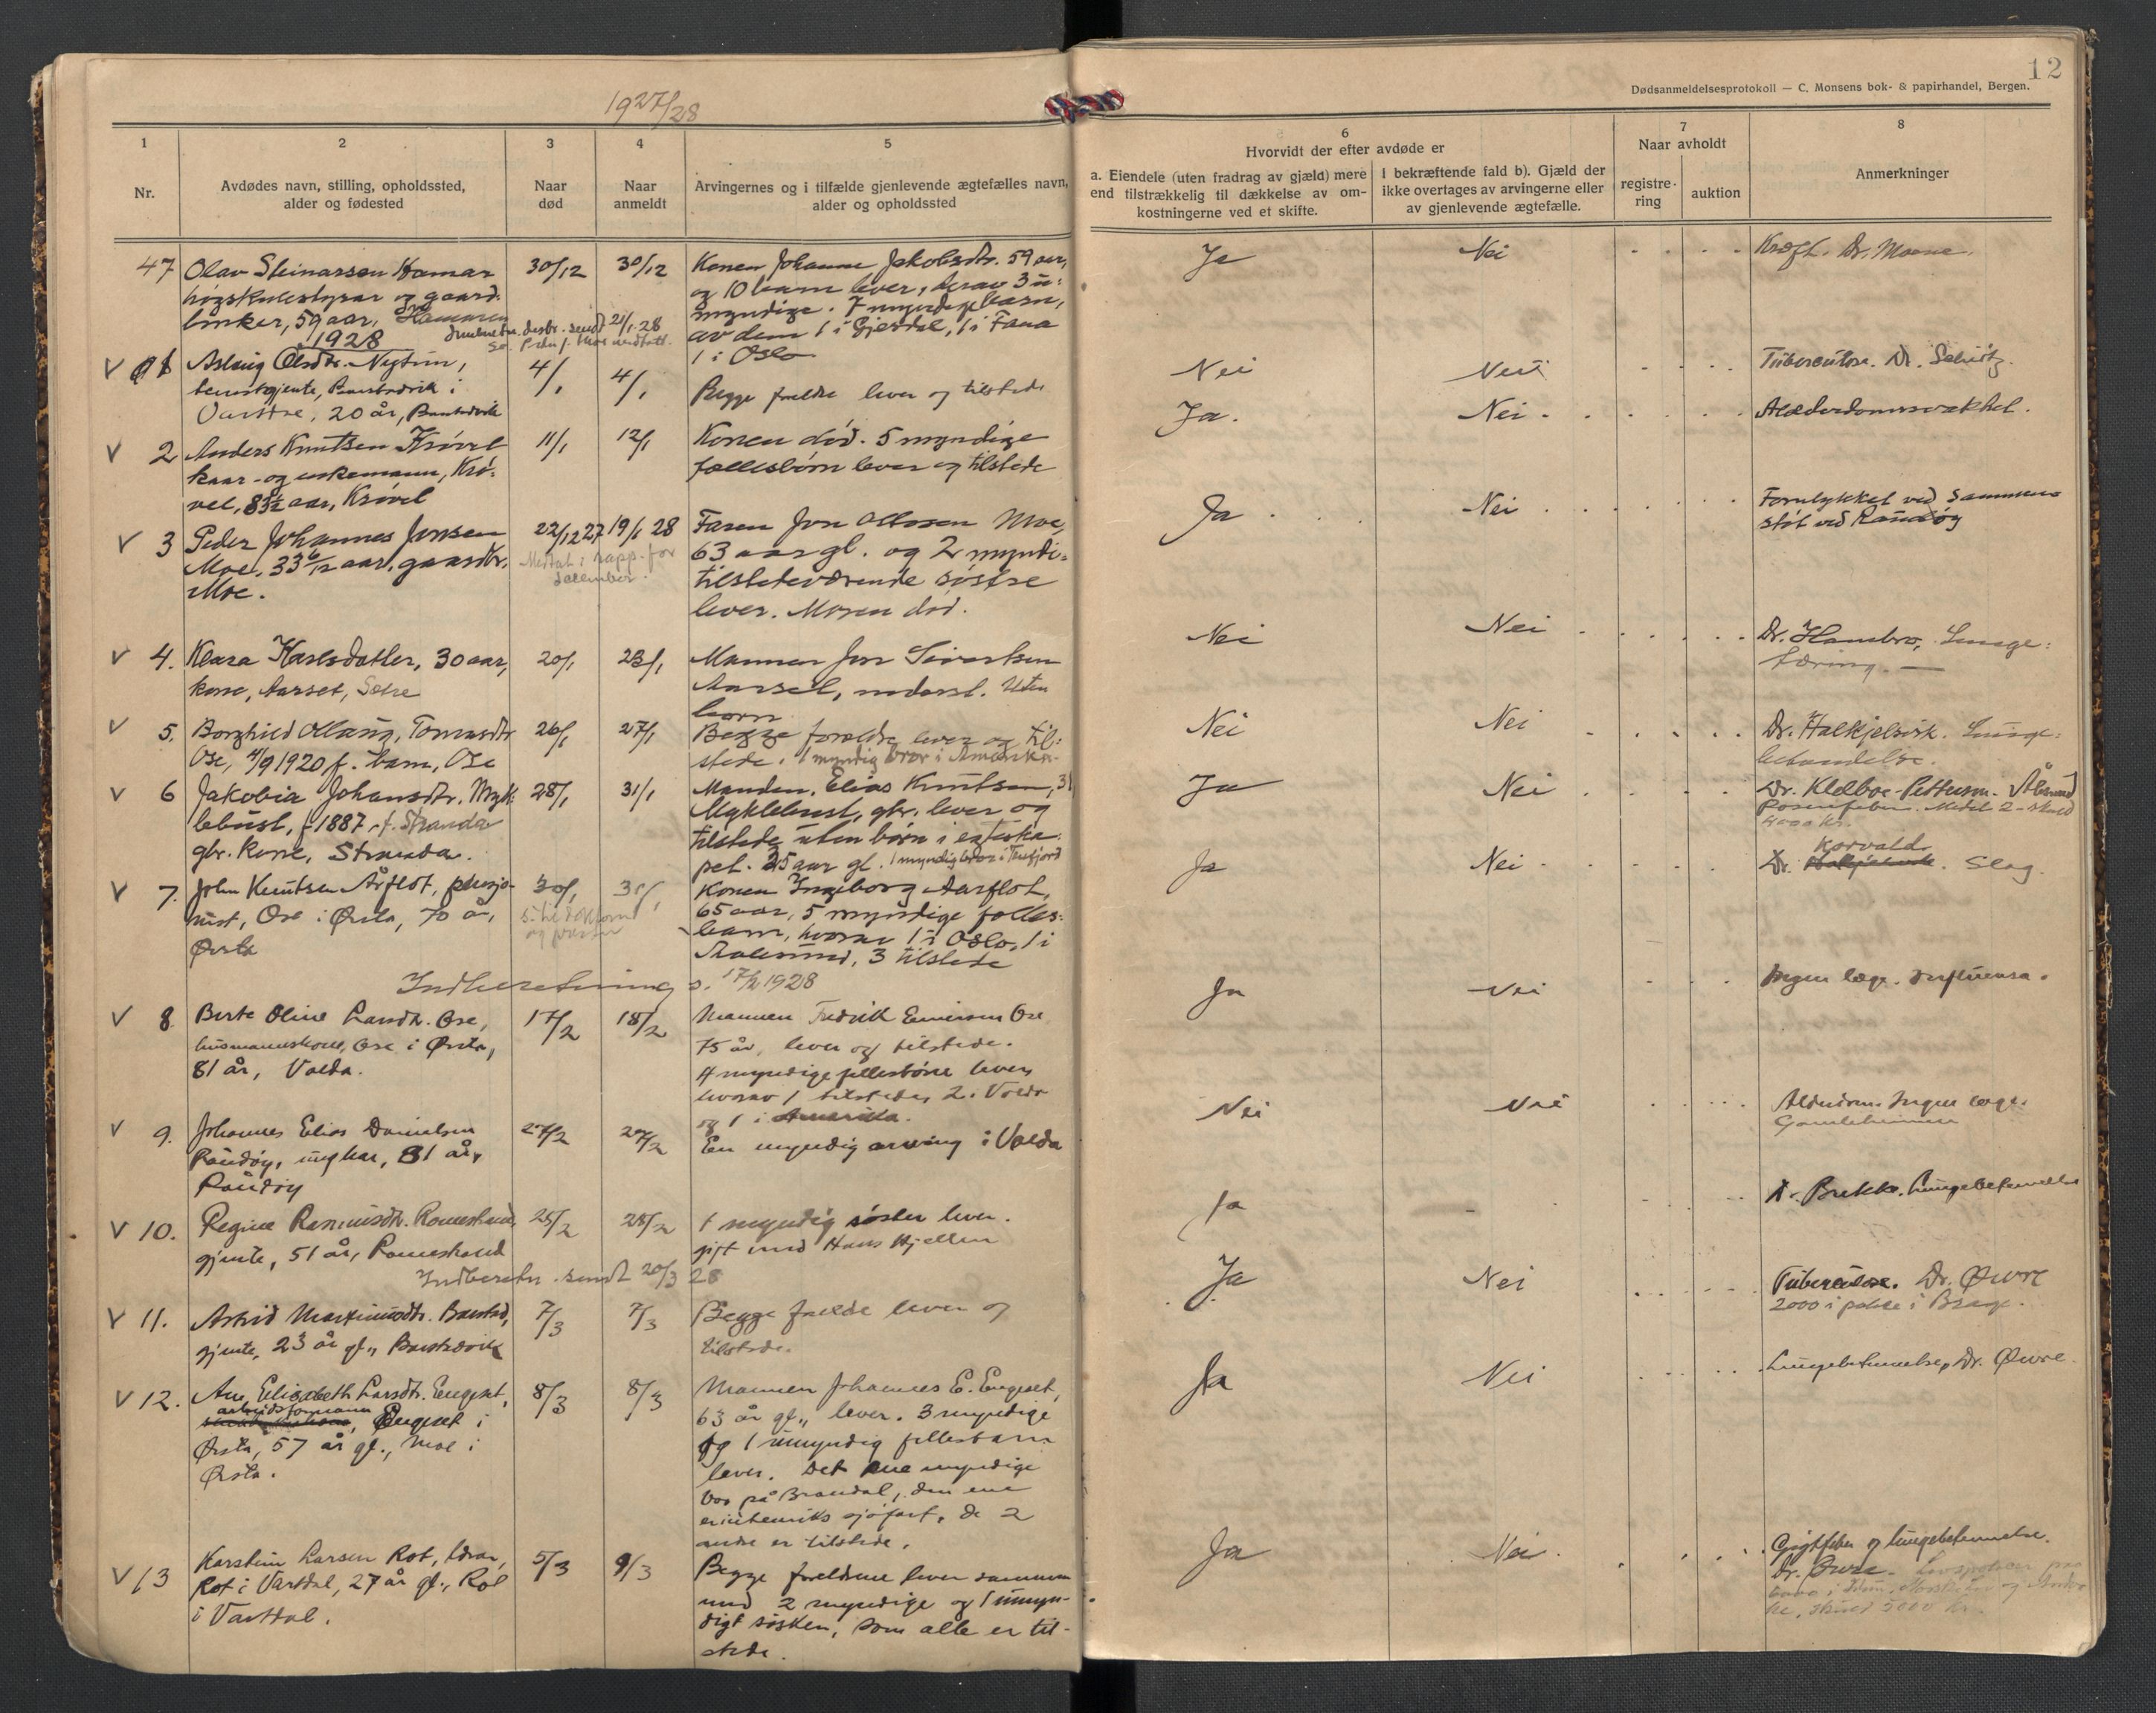 1927/28
12
Dødsanmeldelsesprotokoll — C. Monsens bok- & papirhandel, Bergen.
1 2 3 4 5 6 7 8
Nr.
Avdødes navn, stilling, opholdssted,
alder og fødested
Naar
død
Naar
anmeldt
Arvingernes og i tilfælde gjenlevende ægtefælles navn,
alder og opholdssted
Hvorvidt der efter avdøde er
a. Eiendele (uten fradrag av gjæld) mere
end tilstrækkelig til dækkelse av om-
kostningerne ved et skifte.
I bekræftende fald b). Gjæld der
ikke overtages av arvingerne eller
av gjenlevende ægtefælle.
Naar avholdt
registre-
ring
auktion
Anmerkninger
47 Olav Steinarsen Hamar
høgskulestyrar og gaard-
bruker, 59 aar, Hamaren
30/12 30/12
Konen Johanne Jakobsdtr. 59 aar,
og 10 barn lever, herav 3 u-
myndige. 7 myndige barn,
av dem 1 i Gjesdal, 1 i Fana
1 i Oslo
Ja Nei
Kræft. Dr. Moene.
sendt 21/1-28
1928
V 1 Aslaug Olsdtr. Nystun,
tenestgjente, Baatsdvik i
Vartdal, 20 år, Baatsdvik
4/1 4/1
Begge foreldre lever og tilstede
Nei Nei
Tuberculose. Dr. Schütz.
V 2 Anders Knutsen Krøvel
kaar- og enkemann, Krø-
vel, 83½ aar, Krøvel
11/1 12/1
Konen død. 5 myndige
fællesbørn lever og tilstede
Ja. Nei
Alderdomssvakhet.
V 3 Peder Johannes Jonsen
Moe, 33 6/12 aar, gaardbr.
Moe.
22/12 27 19/1 28
Medtat i rapp. for
december.
Faren Jon Olssen Moe,
63 aar gl. og 2 myndi-
tilstedeværende søstre
lever. Moren død.
Ja Nei
Forulykket ved sammen-
støt ved Raudøy
V 4. Klara Karlsdatter, 30 aar,
kone, Aarset, Sætre
20/1 23/1
Mannen Jon Sivertsen
Aarset, Uten
born
Nei Nei
Dr. Hambro, Lunge-
tæring. —
V 5. Borghild Olaug, Tomasdtr
Ose, 4/9 1920 f. barn, Ose
26/1 27/1
Begge foreldre lever og til-
stede. 1 myndig bror i Amerika.
Nei Nei
Dr. Halkjelsvik. Lunge-
betendelse.
V 6 Jakobia Johansdtr. Myk-
lebust, f 1887. f. Stranda
gbr. kone, Stranda.
28/1 31/1
Manden, Elias Knutsen,
Myklebust, gbr. lever og
tilstede uten børn i egteska-
pet. 35 aar gl. 1 myndig bror i Tresfjord
Ja Nei
Dr. Klelboe-Petterson. Ålesund
Rosenfeber.
4000 kr.
V 7. John Knutsen Årflot, pensjo-
nist, Ose i Ørsta, 70 år,
Ørsta
30/1 31/1
Konen Ingeborg Aarflot,
65 aar, 5 myndige felles-
barn, hvorav 1 i Oslo, 1 i
Aalesund, 3 tilstede
Ja Nei
Korvald.
Dr. Halkjelsvik. Slag.
Indberetning s. 17/2 1928
V 8. Berte Oline Larsdtr. Ose,
husmannskone, Ose i Ørsta,
81 år, Volda.
17/2 18/2
Mannen Fredrik Ose
75 år, lever og tilstede.
4 myndige fellesbørn lever,
hvorav 1 tilstede, 2 i Volda
og 1 i Amerika.
Ja Nei
Ingen læge. Influensa.
V 9. Johannes Elias Danielsen
Raudøy, ungkar, 81 år,
Raudøy
27/2 27/2
En myndig arving i Volda
Nei Nei
Alderdom. Ingen læge.
Gamleheimen
V 10. Regine Rasmusdtr. Romestrand,
gjente, 51 år, Romestrand
25/2 28/2
1 myndig søster lever.
gift med Hans Hjellen
Ja -
Dr. Brekke. Lungebetennelse
Indberetn. sendt 20/3 28
V 11. Astrid Martinusdtr. Baatsd,
gjente, 23 år gl., Baatsdvik
7/3 7/3
Begge foreldre lever og
tilstede.
Ja Nei
Tuberculose. Dr. Øvre
2000 i polise i Brage.
V 12. Ane Elisabeth Larsdtr. Engeset,
arbeidsformann
Engeset i
Ørsta, 57 år gl., Moe i
Ørsta.
8/3 8/3
Mannen Johannes E. Engeset,
63 år gl., lever. 3 myndige
og 1 umyndig fellesbarn
lever. Det ene myndige
bor på Brandal, den ene
er i utenriks sjøfart, de 2
andre er tilstede.
Ja Nei
Lungebetennelse, Dr. Øvre.
V 13 Karsten Larsen Rot,
Rot i Vartdal, 27 år gl., Rot
i Vartdal.
5/3 9/3
Begge foreldrene lever sammen
med 2 myndige og 1 umyn-
digt søsken, som alle er til-
stede.
Ja Nei
Gigtfeber og lungebetennelse.
Dr. Øvre.